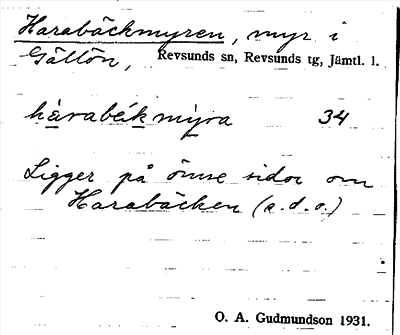 Harabäckmyren, myr i
Gällön, Revsunds sn, Revsunds tg, Jämtl. l.
hàrabékmỳra 34
Ligger på ömse sidor om
Harabäcken (s.d.o.)
O. A. Gudmundson 1931.